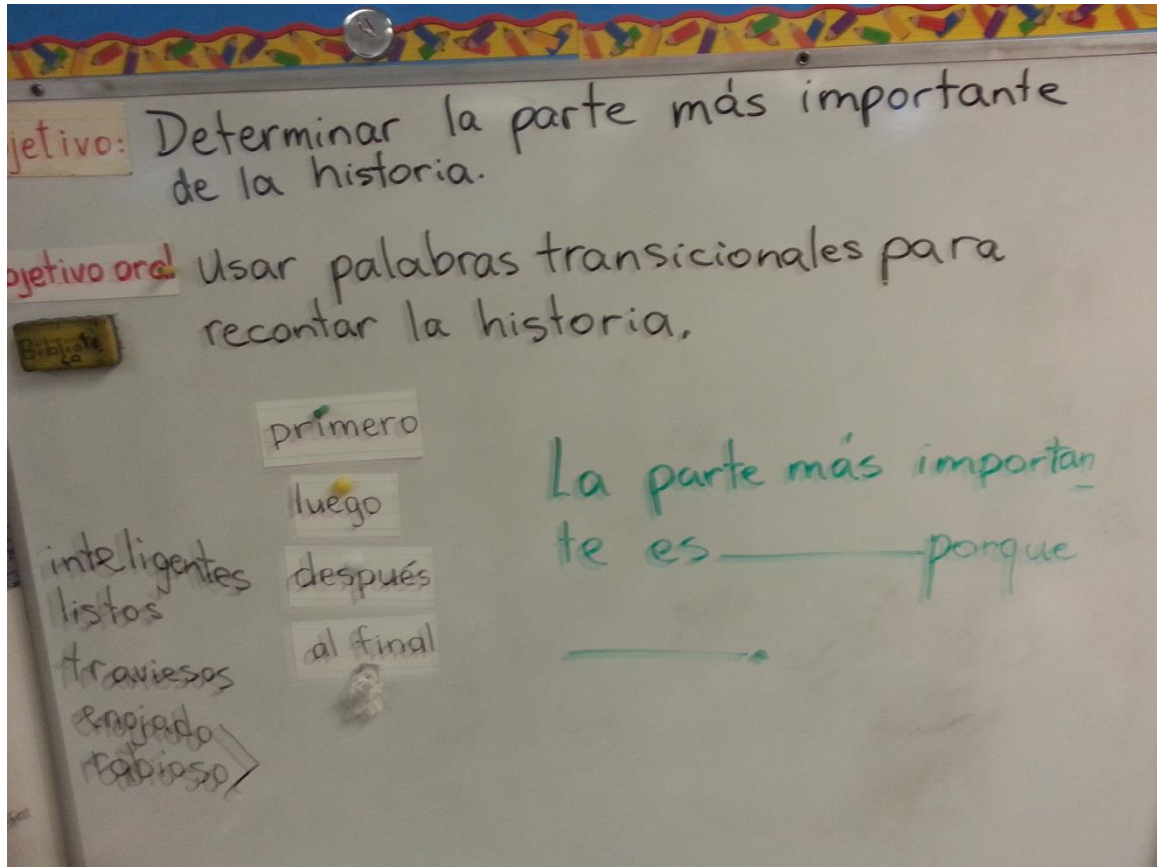 jetivo: Determinar la parte más importante
de la historia.
bjetivo oral Usar palabras transicionales para
recontar la historia.
primero
luego
después
al final
inteligentes
listos
traviesos
enojado
rabioso
La parte más importan
te es ______ porque
______.